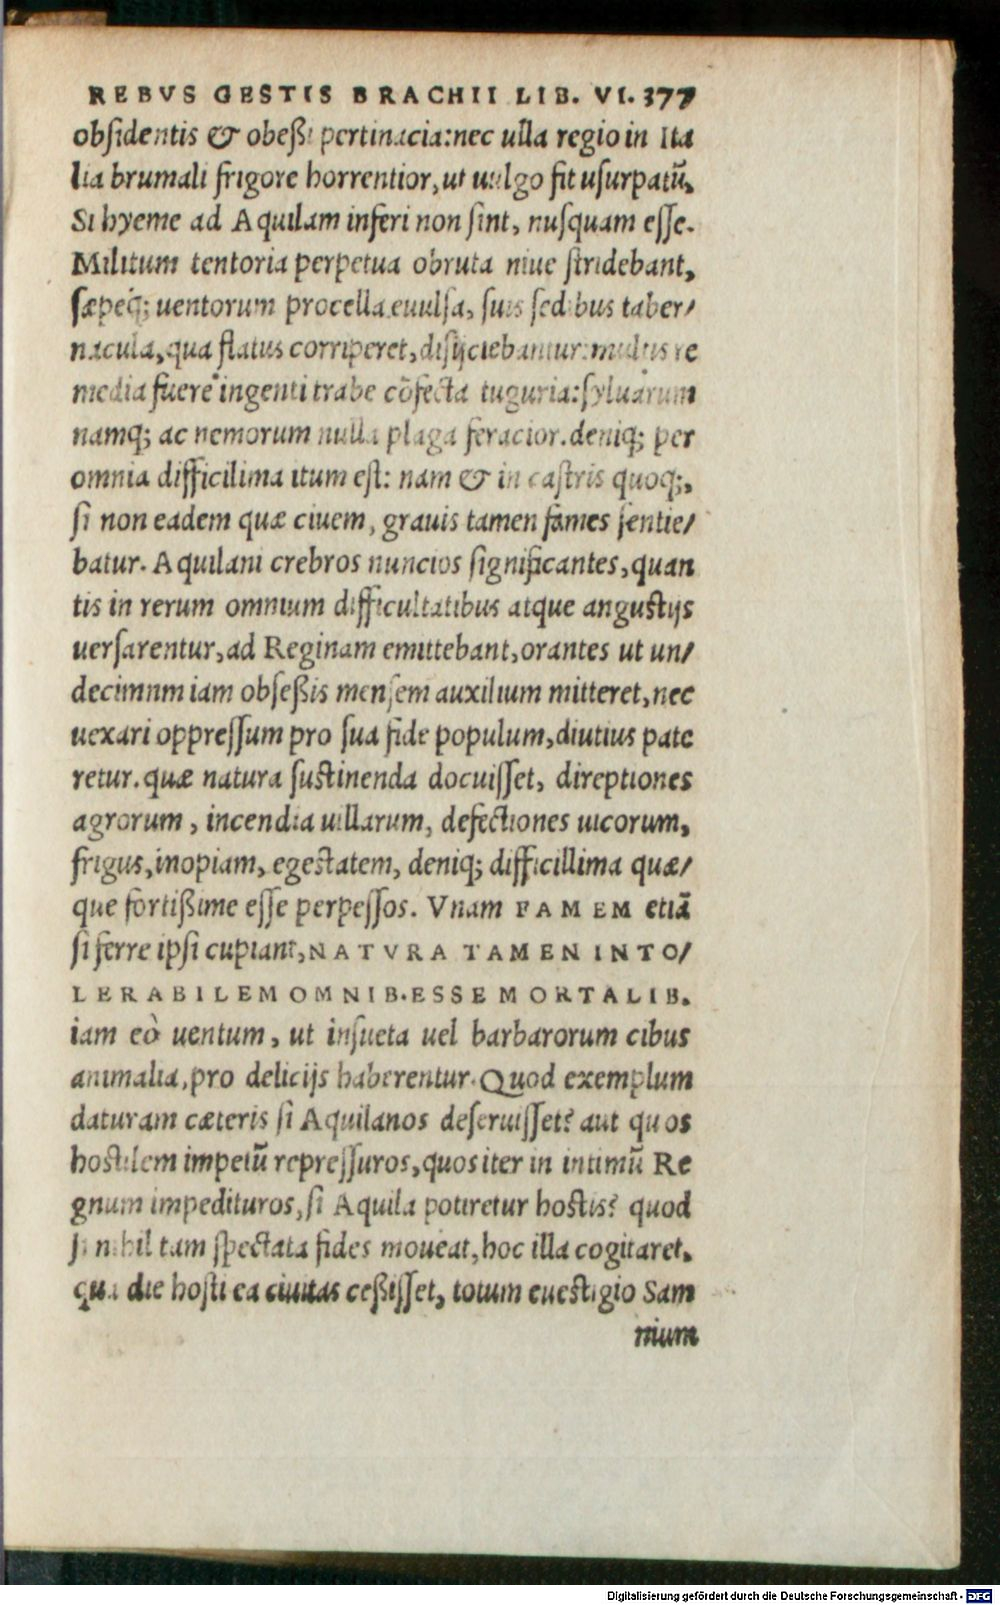 REBVS GESTIS BRACHII LIB. VI. 377
obſidentis & obeßi pertinacia: nec ulla regio in Ita
lia brumali frigore horrentior, ut uulgo fit uſurpatũ.
Si hyeme ad Aquilam inferi non ſint, nuſquam eſſe.
Militum tentoria perpetua obruta niue ſtridebant,
ſæpeq́; uentorum procella euulſa, ſuis ſedibus taber/
nacula, qua flatus corriperet, diſijciebantur: multis re
media fuere ingenti trabe cõfecta tuguria: ſyluarum
namq; ac nemorum nulla plaga feracior. deniq; per
omnia difficilima itum eſt: nam & in caſtris quoq;,
ſi non eadem quæ ciuem, grauis tamen fames ſentie/
batur. Aquilani crebros nuncios significantes, quan
tis in rerum omnium difficultatibus atque anguſtijs
uerſarentur, ad Reginam emittebant, orantes ut un/
decimnm iam obſeßis menſem auxilium mitteret, nec
uexari oppreſſum pro ſua fide populum, diutius pate
retur. quæ natura ſuſtinenda docuiſſet, direptiones
agrorum, incendia uillarum, defectiones uicorum,
frigus, inopiam, egeſtatem, deniq; difficillima quæ/
que fortißime eſſe perpeſſos. Vnam FAMEM etiã
ſi ferre ipſi cupiant, NATVRA TAMEN INTO/
LERABILEM OMNIB. ESSE MORTALIB.
iam eò uentum, ut inſueta uel barbarorum cibus
animalia, pro delicijs haberentur. Quod exemplum
daturam cæteris ſi Aquilanos deſeruiſſet? aut quos
hoſtilem impetũ repreſſuros, quos iter in intimũ Re
gnum impedituros, ſi Aquila potiretur hoſtis? quod
ſi nihil tam ſpectata fides moueat, hoc illa cogitaret.
qua die hoſti ea ciuitas ceßiſſet, totum eueſtigio Sam
nium
Digitalisierung gefördert durch die Deutsche Forschungsgemeinschaft - DFG